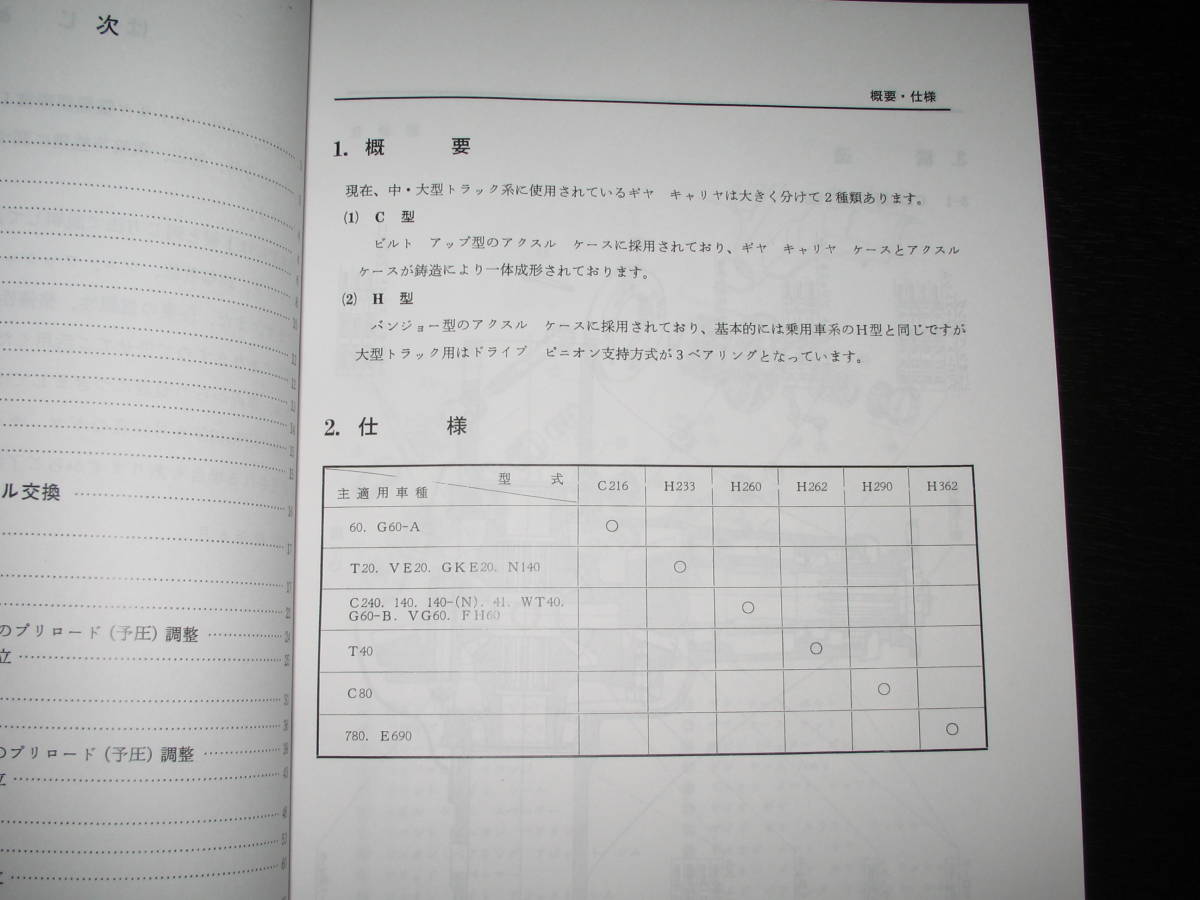 次
ル交換
のプリロード(予圧)調整
立
のプリロード(予圧)調整
立
概要・仕様
1. 概 要
現在、中・大型トラック系に使用されているギヤ キャリヤは大きく分けて2種類あります。
(1) C 型
ビルト アップ型のアクスル ケースに採用されており、ギヤ キャリヤ ケースとアクスル
ケースが鋳造により一体成形されております。
(2) H 型
バンジョー型のアクスル ケースに採用されており、基本的には乗用車系のH型と同じですが
大型トラック用はドライブ ピニオン支持方式が3ベアリングとなっています。
2. 仕 様
型 式
主適用車種
C216 H233 H260 H262 H290 H362
60. G60-A ○
T20. VE20. GKE20. N140 ○
C240. 140. 140-(N). 41. WT40.
G60-B. VG60. FH60 ○
T40 ○
C80 ○
780. E690 ○